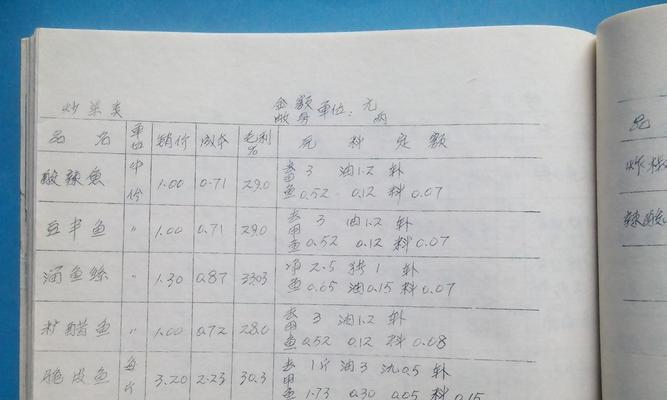 炒菜类 金额单位：元
数量 两
品名 单位 销价 成本 毛利% 原料定额
酸辣鱼 中份 1.00 0.71 29.0 去 3 油1.2 补
鱼0.52 0.12 料0.07
豆半鱼 〃 1.00 0.71 29.0 去 3 油1.2 补
鱼0.52 0.12 料0.07
鱼丝 〃 1.30 0.87 33.03 净2.5 1 补
鱼0.65 油0.15 料0.07
醋鱼 〃 1.00 0.72 28.0 去 3 油1.2 补
鱼0.52 0.12 料0.08
脆皮鱼 每斤 3.20 2.23 30.3 去 1斤 油3 0.5 补
鱼1.73 0.30 0.05 料0.15
品
炸
辣